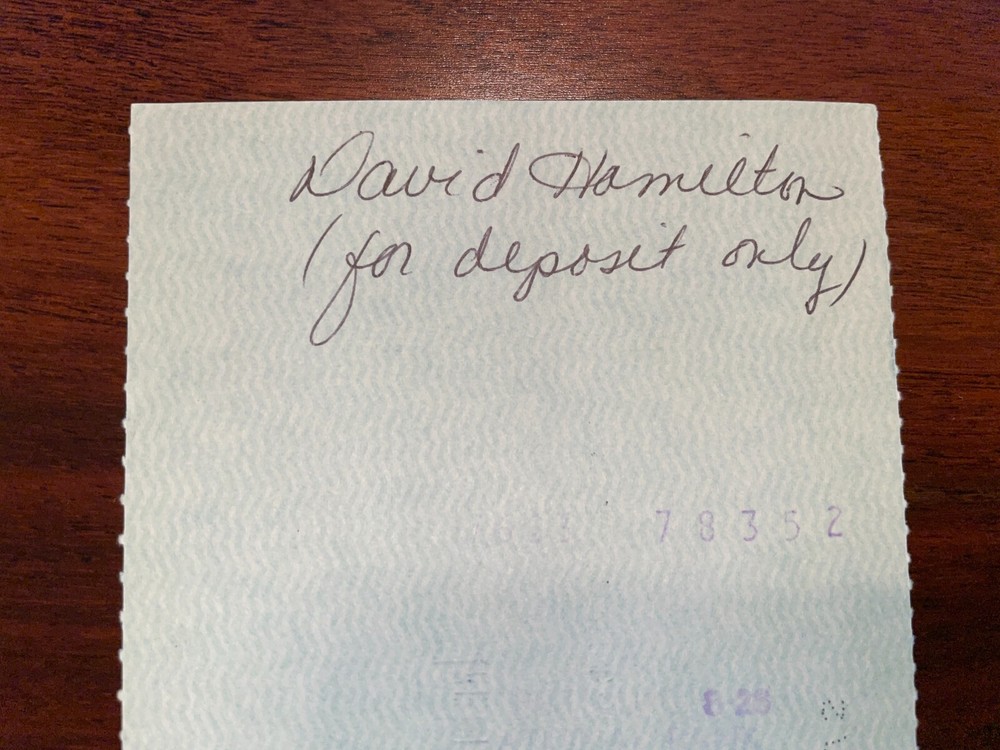 David Hamilton
(for deposit only)
78352
8 25